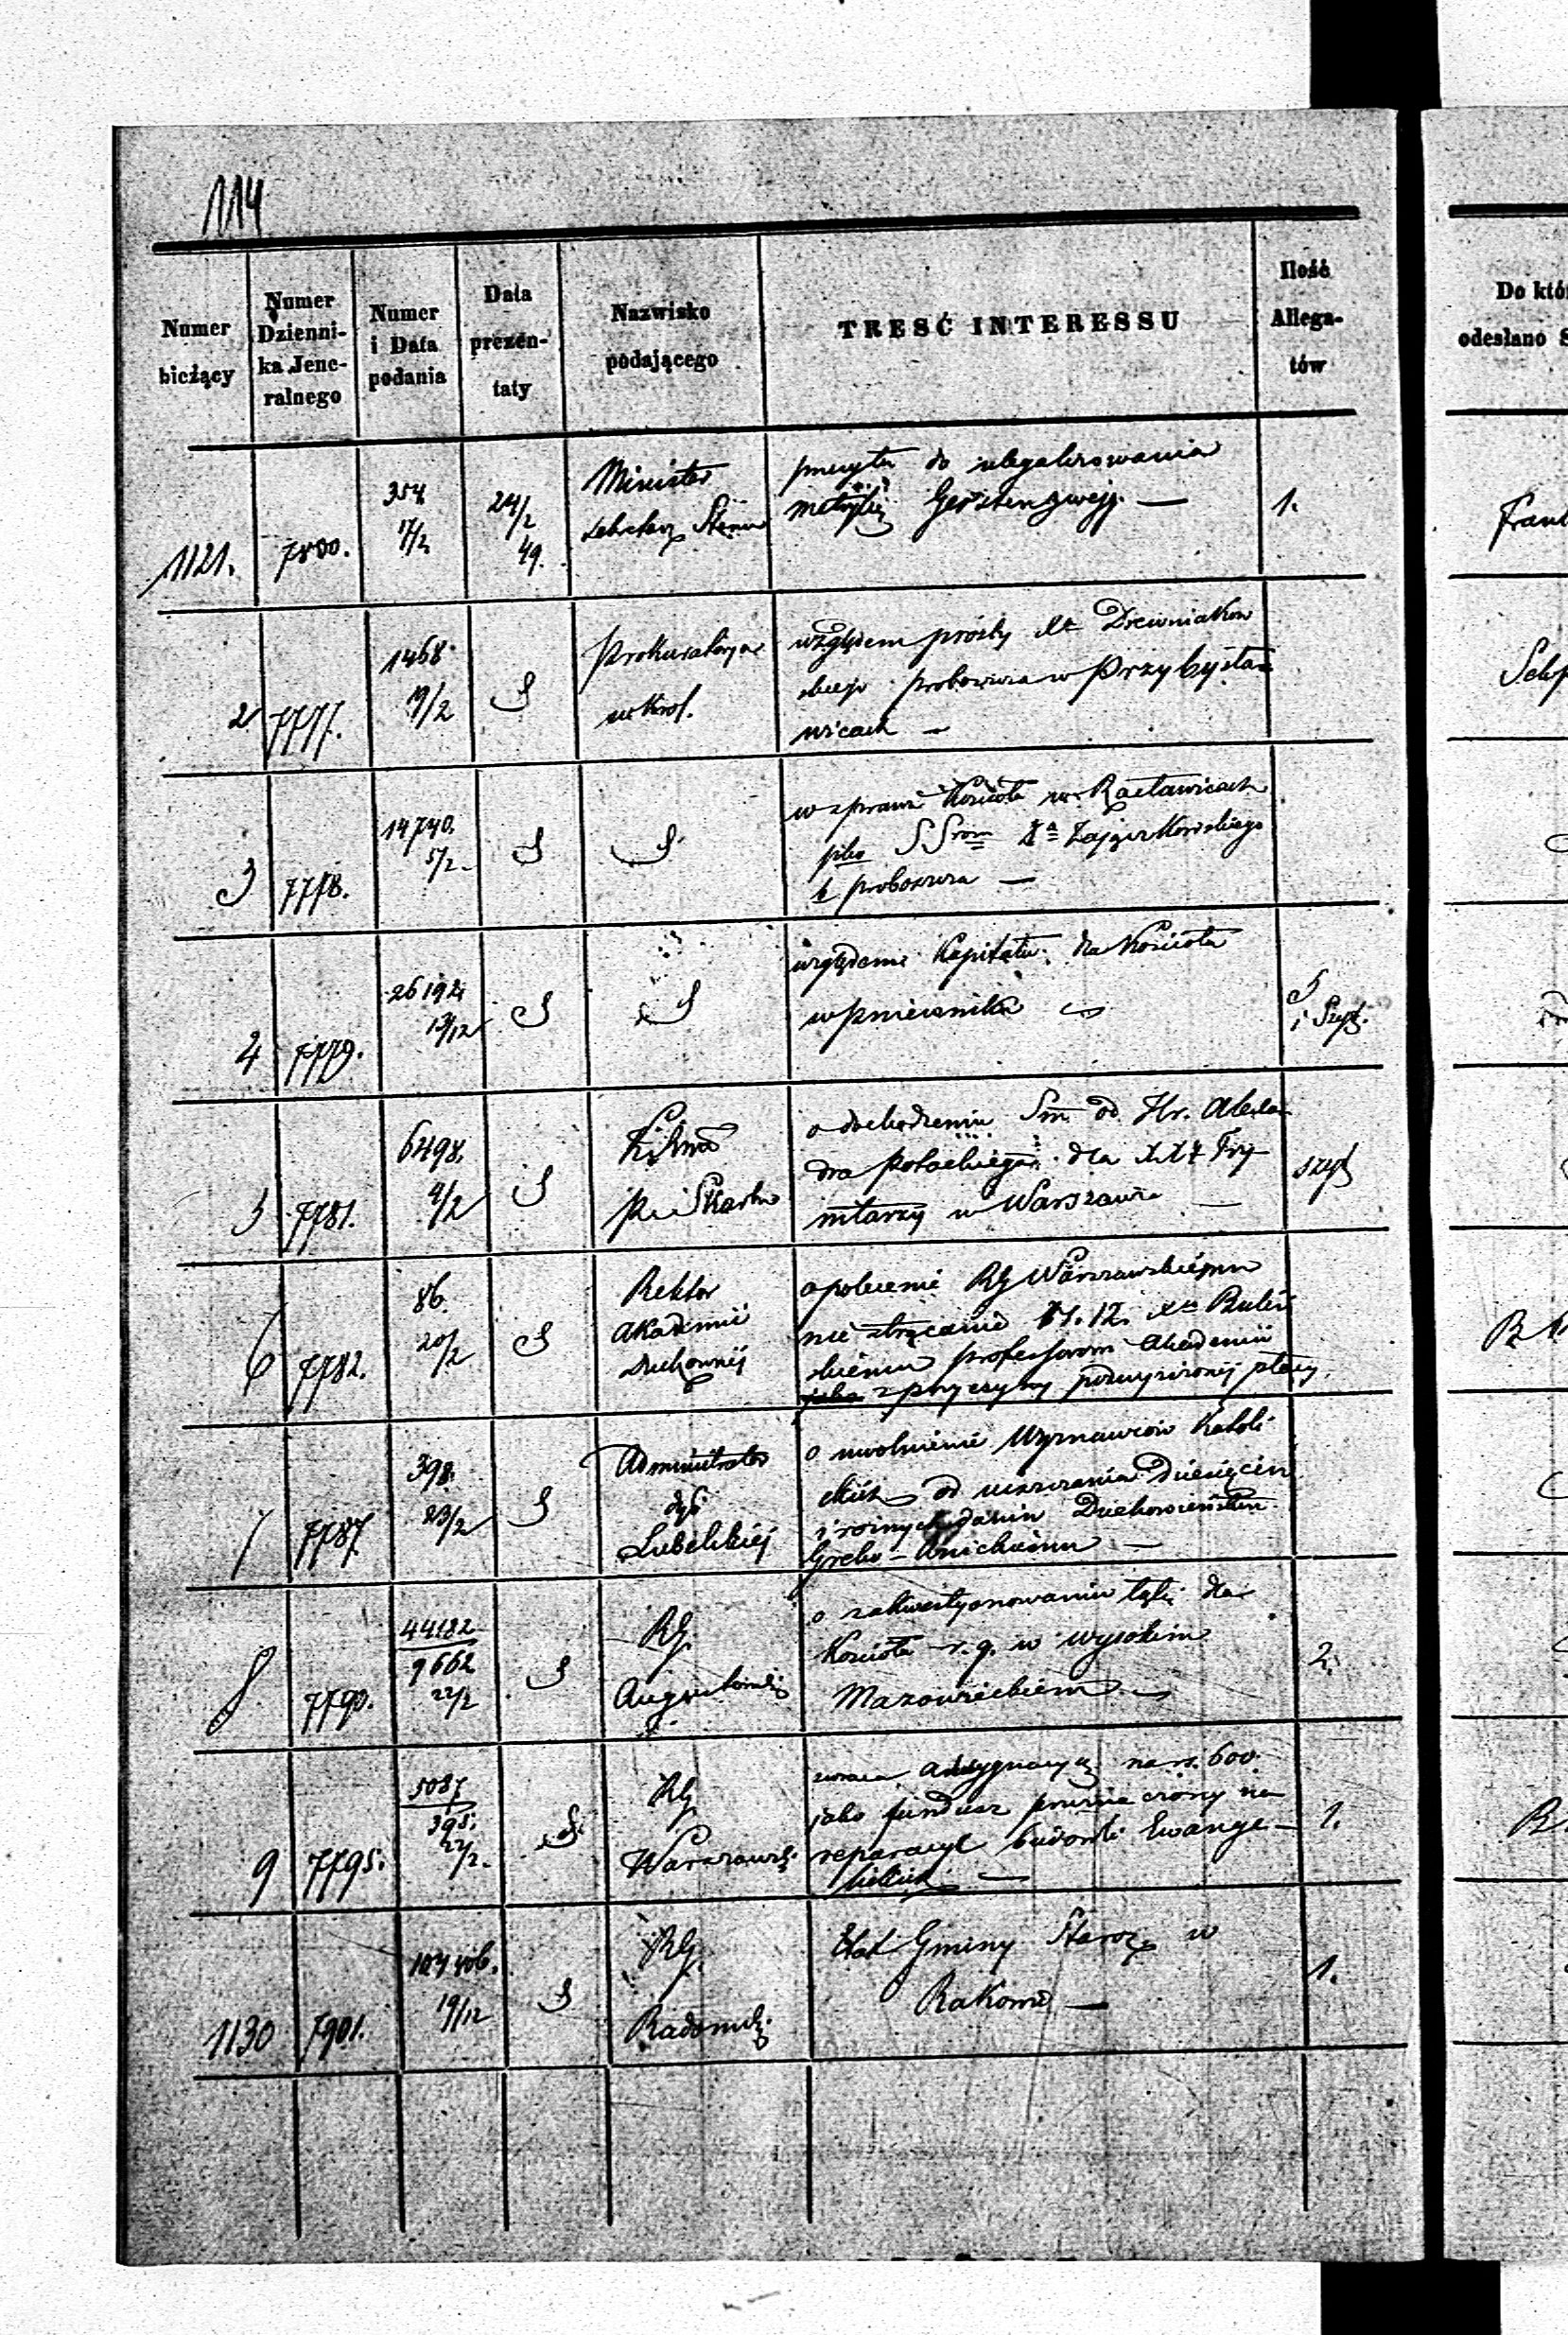 114
Numer
bieżący
Numer
Dzienni-
ka Jene-
ralnego
Numer
i Data
podania
Data
prezen-
taty
Nazwisko
podającego
TRESĆ INTERESSU
Ilość
Allega-
tów
Do któ
odesłano S
1121.
7800.
354
17/2
24/2
49.
Minister
Sekretarz Stanu
do ulegalizowania
metrykę
1.
Frank
2
7777.
1468
19/2
Prokuratorya
w Król.
względem prośby Xa Drewniakow
skiego proboszcza w Przybysła
wicach —
3
7778.
14740.
5/2
w sprawie Kościoła w Racławicach
Xa Zajączkowskiego
proboszcza —
4
7779.
26192
13/12
względem Kapitału dla Kościoła
w
i Szyt.
5
7781.
6498.
4/2
P. i Skarbu
o dochodzeniu Sm. od Hr. Alexan
dra Potockiego dla XX Try
nitarzy w Warszawie —
szyt
6
7782.
86.
20/2
Rektor
Akademii
Duchownej
o polecenie RG Warszawskiemu
nie strącanie Xu
skiemu professorom Akademii
z przyczyny podwyższonej płacy.
7
7787.
398.
23/2
Administrator
dye
Lubelskiej
o uwolnienie Wyznawców Katoli
ckich od uiszczania Dziesięcin
i roznych danin Duchowieństwu
Greko-Unickiemu —
8
7790.
44182
9662
22/2
RG.
Augustowski
o zakwestyonowaniu dla
Kościoła r. g. w Wysokiem
Mazowieckiem —
2.
9
7795.
5087
395.
22/2.
RG
Warszawski
zwraca assygnacyę na rs. 600.
jako fundusz przeznaczony na
reparacye budowli Ewange-
lickich —
1.
1130
7901.
19/12
RG.
Radomski
Etat Gminy Staroz. w
Rakowie —
1.